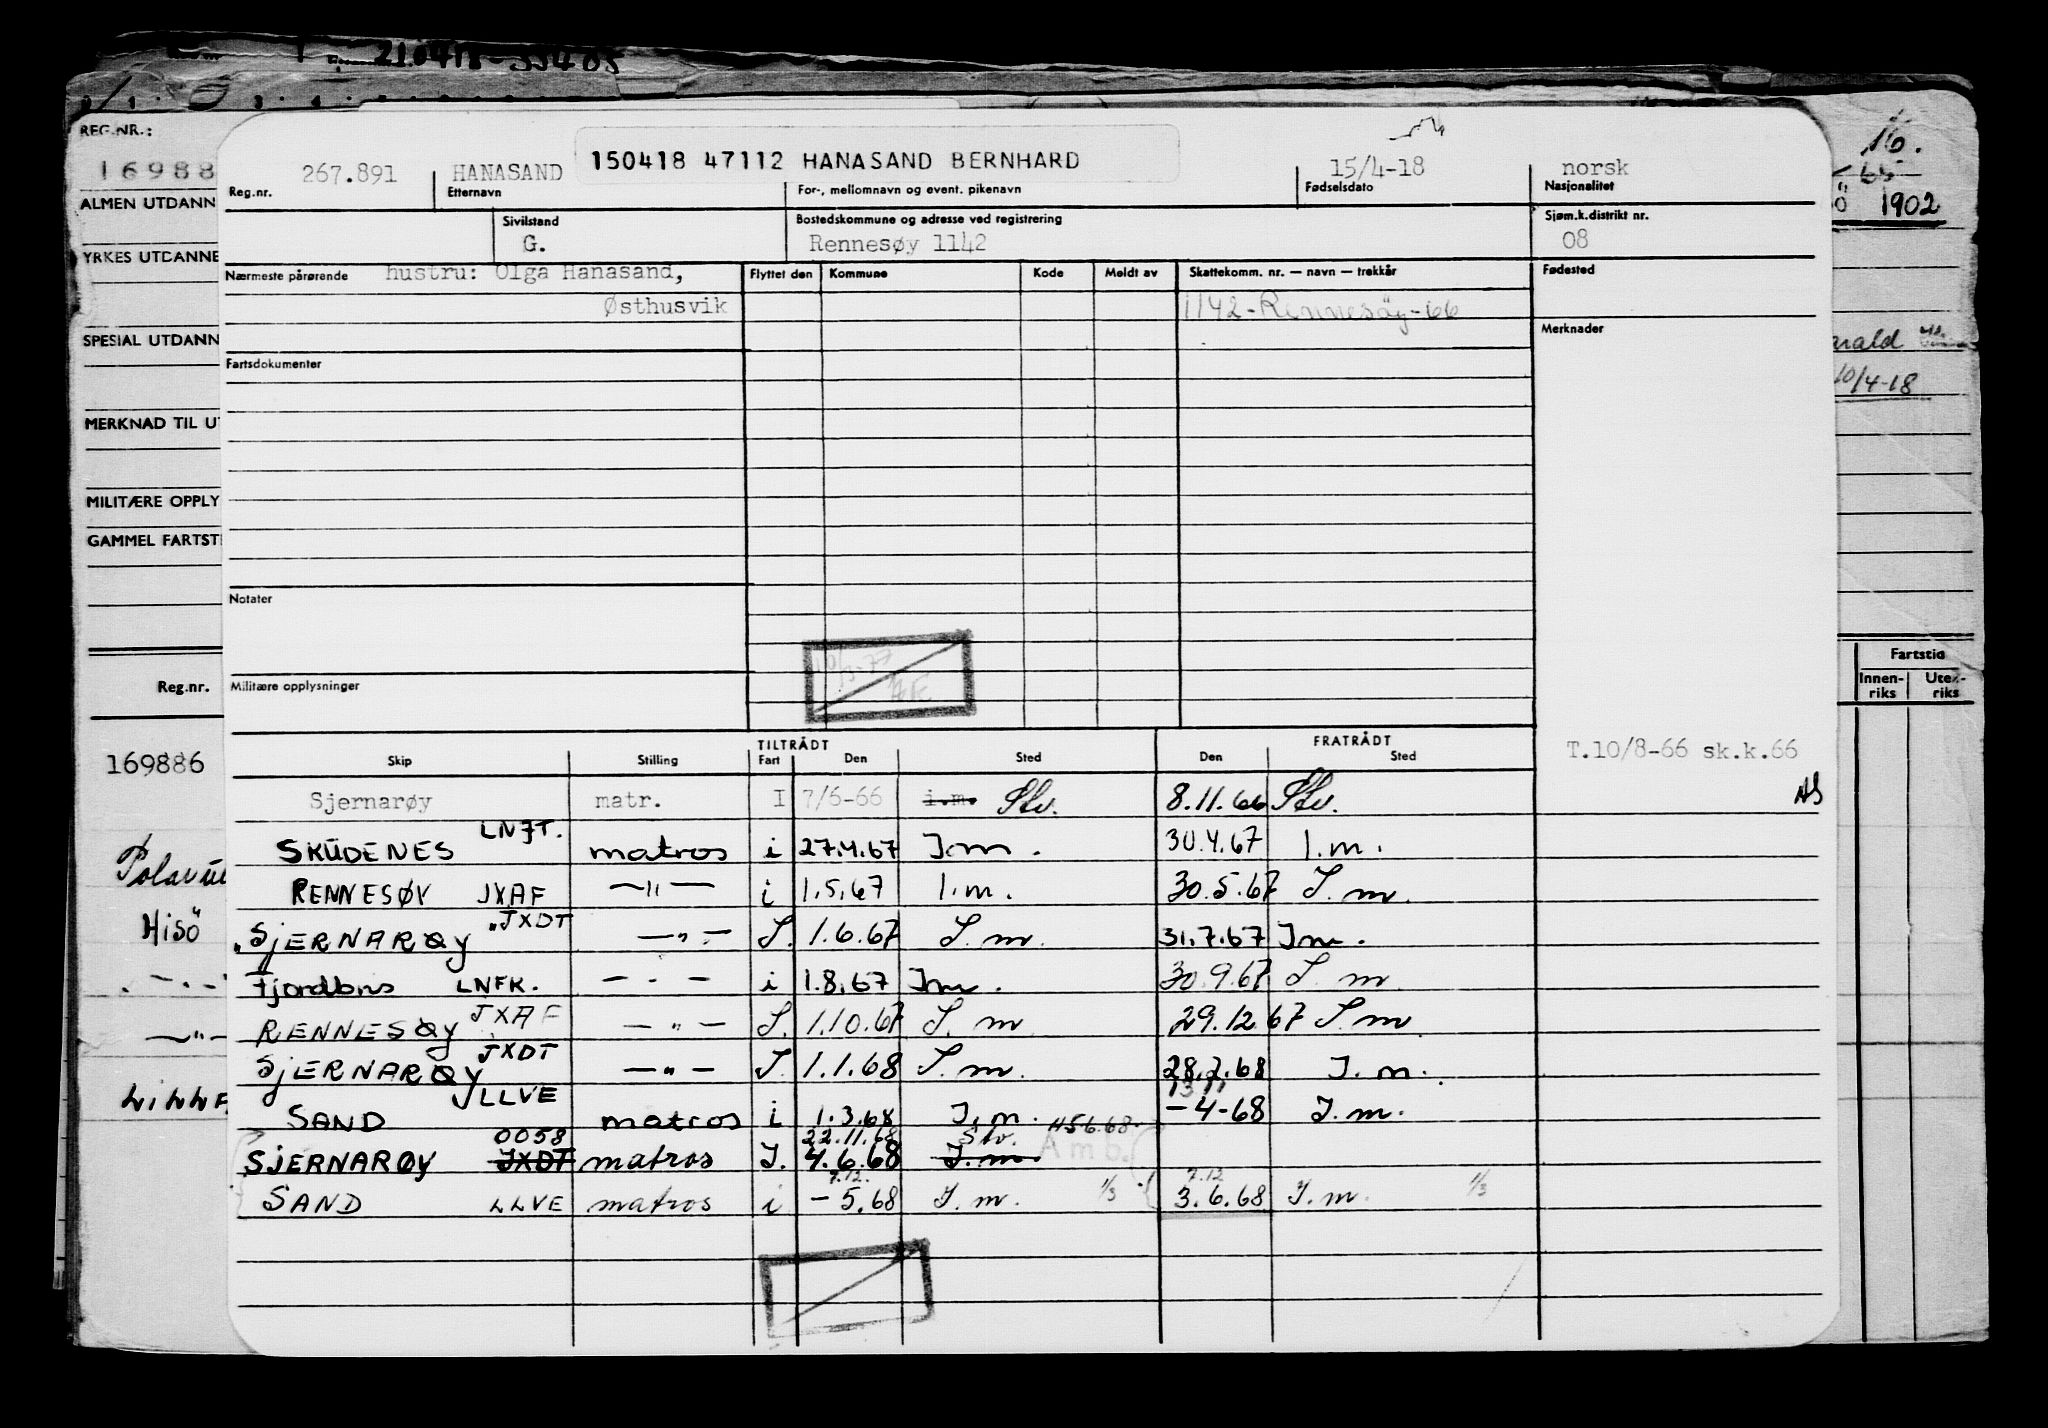 210418-
REG.NR.:
16988
ALMEN UTDANN
YRKES UTDANNE
SPESIAL UTDANN
MERKNAD TIL UT
MILITÆRE OPPLY
GAMMEL FARTST
Reg.nr.
169886
Hisö
16.
1902
arald
10/4-18
Fartstid
Innen-riks Uten-riks
267.891 HANASAND 150418 47112 HANASAND BERNHARD 15/4-18 norsk
Reg.nr. Etternavn For-, mellomnavn og event. pikenavn Fødselsdato Nasjonalitet
Sivilstand Bostedskommune og adresse ved registrering Sjøm.k.distrikt nr.
G. Rennesøy 1142 08
Nærmeste pårørende hustru: Olga Hanasand, Flyttet den Kommune Kode Meldt av Skattekomm. nr. — navn — trekkår Fødested
Østhusvik 1142-Rennesöy-66
Merknader
Fartsdokumenter
Notater
Militære opplysninger
TILTRÅDT FRATRÅDT
Skip Stilling Fart Den Sted Den Sted
T.10/8-66 sk.k.66
Sjernarøy matr. I 7/6-66 i.m. Stv. 8.11.66 Stv.
SKUDENES LNJT. matros i 27.4.67 I.m. 30.4.67 I.m.
RENNESØY JXAF —"— i 1.5.67 I.m. 30.5.67 I.m.
SJERNARØY "JXDT —"— I. 1.6.67 I.m. 31.7.67 I.m.
Fjordbris LNFK. —"— i 1.8.67 I.m. 30.9.67 I.m.
RENNESØY JXAF —"— I. 1.10.67 I.m. 29.12.67 I.m.
SJERNARØY JXDT —"— I. 1.1.68 I.m. 28.2.68 I.m.
SAND LLVE matros i 1.3.68 I.m. -4-68 I.m.
0058 22.11.68 Stv.
SJERNARØY JXDT matros I. 4.6.68 I.m. Amb.
7.12. 7.12
SAND LLVE matros i -5.68 I.m. 1/3 3.6.68 I.m. 1/3